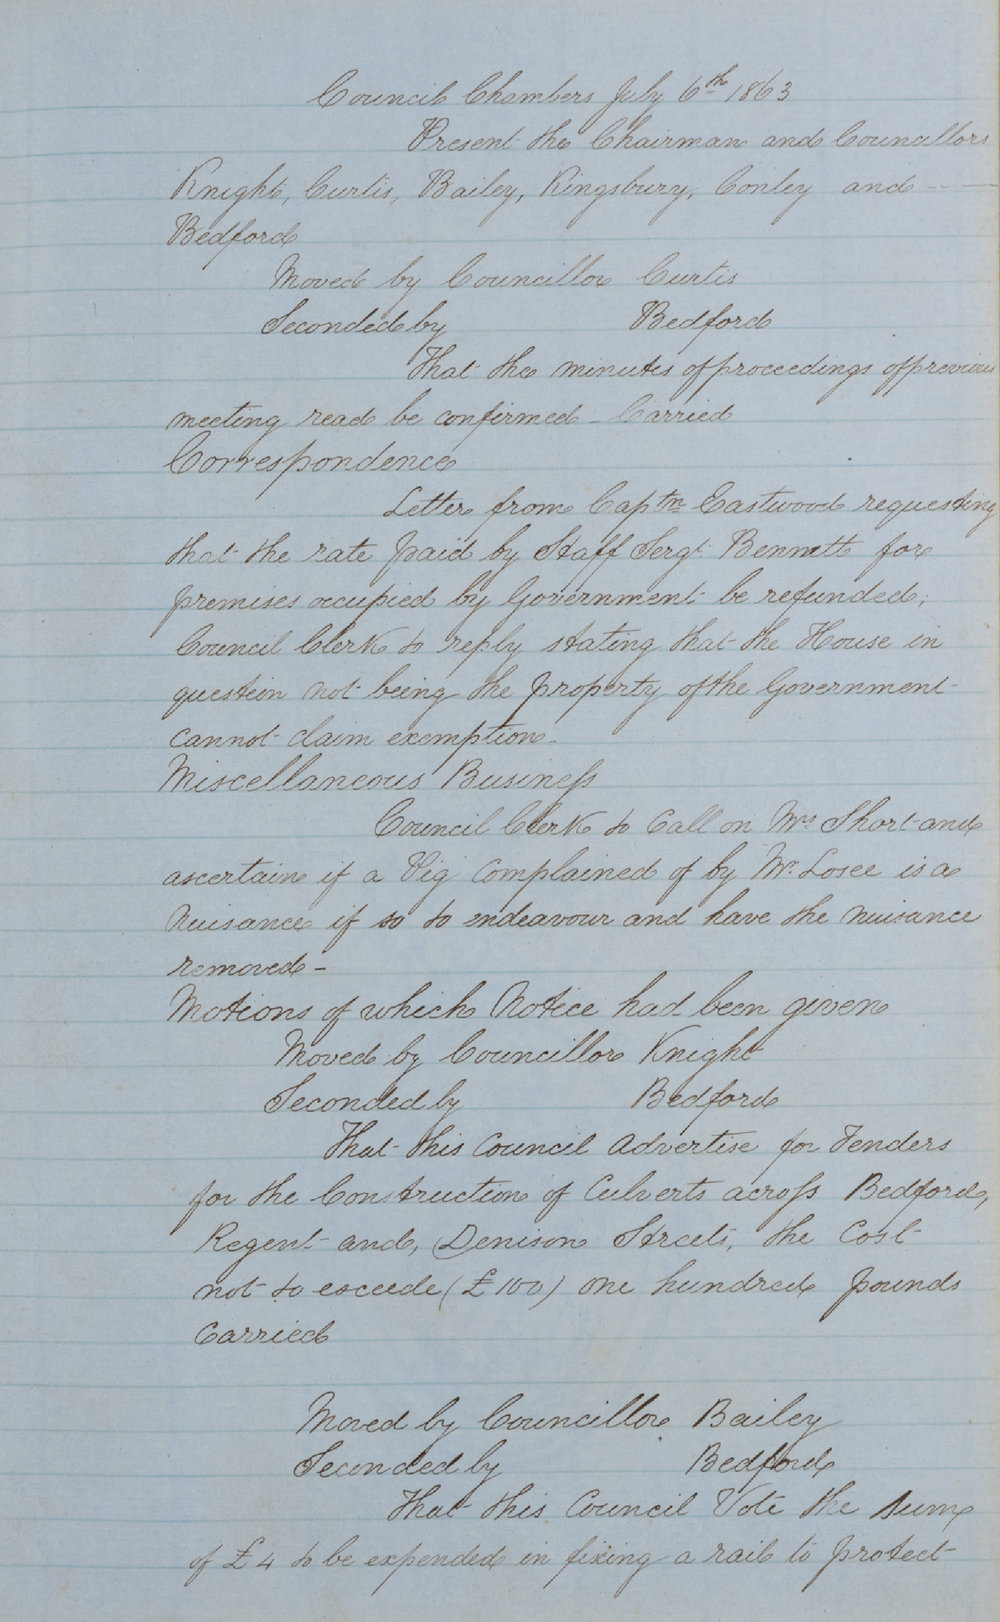 Council Chambers July 6th 1863
Present the Chairman and Councillors
Knight, Curtis, Bailey, Kingsbury, Conley and
Bedford
Moved by Councillor Curtis
Seconded by Bedford
That the minutes of proceedings of previous
meeting read be confirmed - Carried
Correspondence
Letter from Captn Eastwood requesting
that the rate paid by Staff Sergt Bennett for
premises occupied by Government be refunded;
Council Clerk to reply stating that the House in
question not being the property of the Government
cannot claim exemption -
Miscellaneous Business
Council Clerk to Call on Mrs Short and
ascertain if a Pig Complained of by Mr. Losee is a
Nuisance if so to endeavour and have the nuisance
removed -
Motions of which Notice had been given
Moved by Councillor Knight
Seconded by Bedford
That this Council Advertise for Tenders
for the Construction of Culverts across Bedford,
Regent and, Denison Streets, the Cost
not to exceede (£100) One hundred pounds
Carried
Moved by Councillor Bailey
Seconded by Bedford
That this Council Vote the sum
of £4 to be expended in fixing a rail to protect